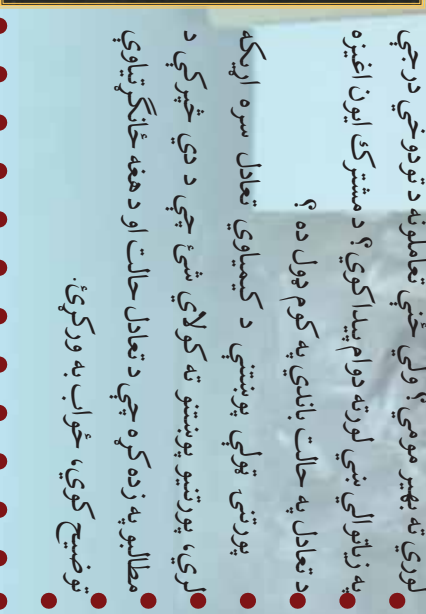 لوري ته بهير مومي؟ ولې ځنې تعاملونه د تودوخې درجې
په زياتوالي ښي لورته دوام پيدا کوي؟ د مشترک ايون اغيزه
د تعادل په حالت باندې په کوم ډول ده؟
پورتنۍ ټولې پوښتنې د کيمياوي تعادل سره اړيکه
لري، پورتنيو پوښتنو ته کولای شئ چې د دې څپرکي د
مطالبو په زده کړه چې د تعادل حالت او د هغه ځانګړتياوې
توضيح کوي، ځواب به ورکړئ.